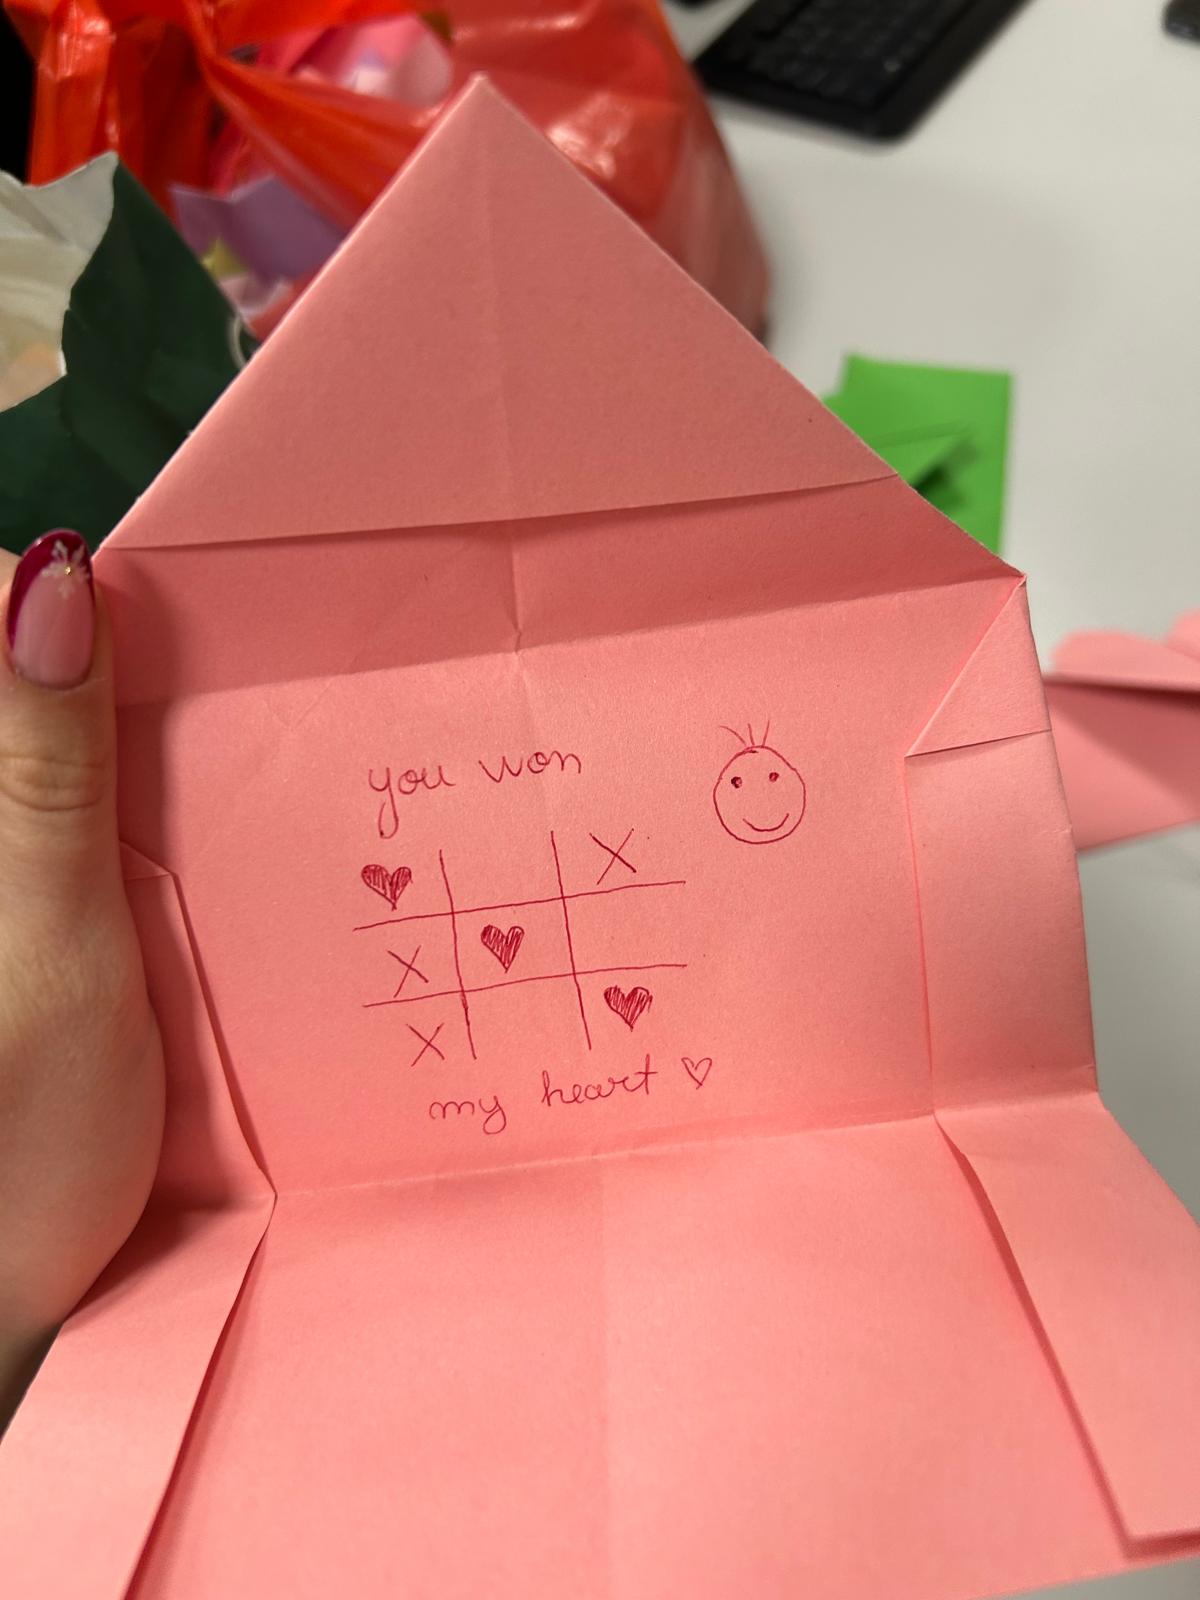 you won
X
X
X
my heart ♡